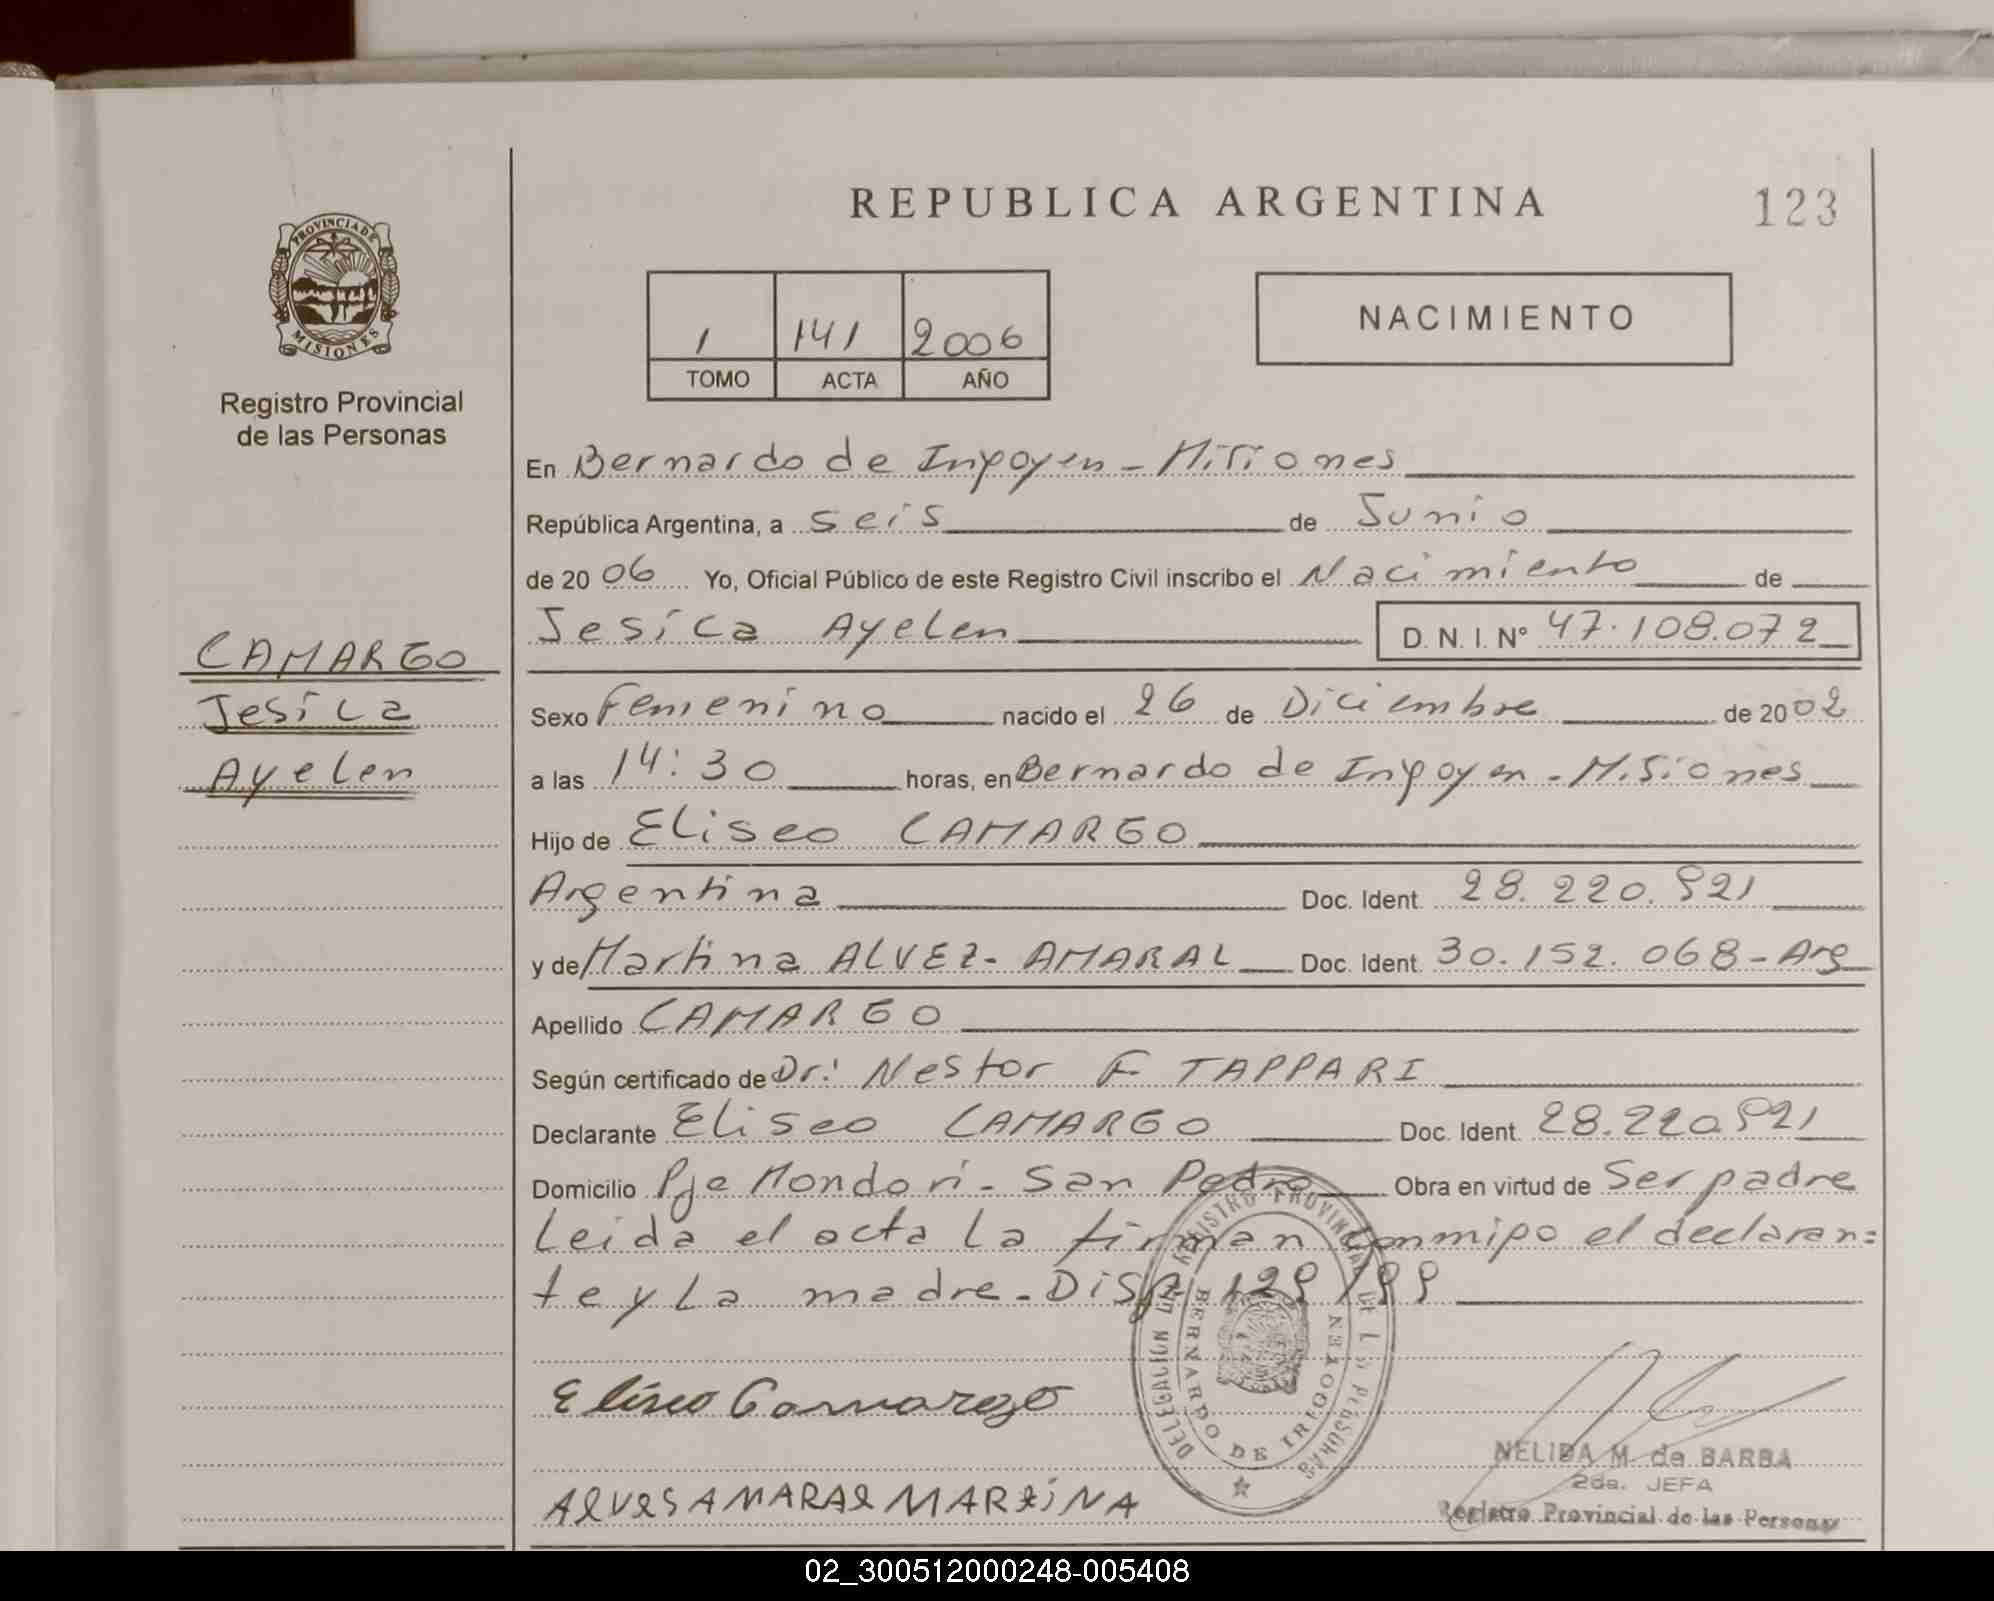 REPUBLICA ARGENTINA
123
PROVINCIA DE
MISIONES
Registro Provincial
de las Personas
1 141 2006
TOMO ACTA AÑO
NACIMIENTO
En Bernardo de Irigoyen - Misiones
República Argentina, a seis de Junio
de 20 06 Yo, Oficial Público de este Registro Civil inscribo el Nacimiento de
Jesica Ayelen D. N. I. N° 47.108.072
CAMARGO
Jesica
Ayelen
Sexo Femenino nacido el 26 de Diciembre de 2002
a las 14:30 horas, en Bernardo de Irigoyen - Misiones
Hijo de Eliseo CAMARGO
Argentina Doc. Ident. 28.220.921
y de Martina ALVEZ - AMARAL Doc. Ident. 30.152.068 - Arg
Apellido CAMARGO
Según certificado de Dr: Nestor F. TAPPARI
Declarante Eliseo CAMARGO Doc. Ident. 28.220.921
Domicilio Pje Mondori - San Pedro Obra en virtud de Ser padre
Leida el acta La firman conmigo el declaran=
te y La madre - Disp. 129/99
Eliseo Camargo
AlVeSAMARAl MARtiNA
DELEGACION DEL REGISTRO PROVINCIAL DE LAS PERSONAS
BERNARDO DE IRIGOYEN
NELIDA M. de BARBA
2da. JEFA
Registro Provincial de las Personas
02_300512000248-005408